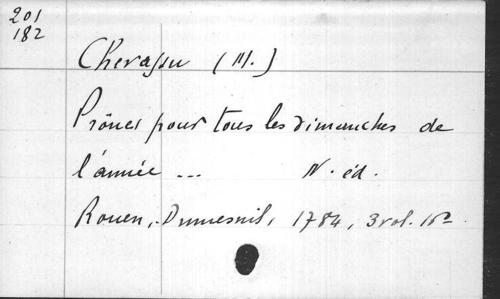 201
182
Chevassu (M.)
Prônes pour tous les dimanches de
l'année ... N. éd.
Rouen, Dumesnil, 1784, 3 vol. 12º